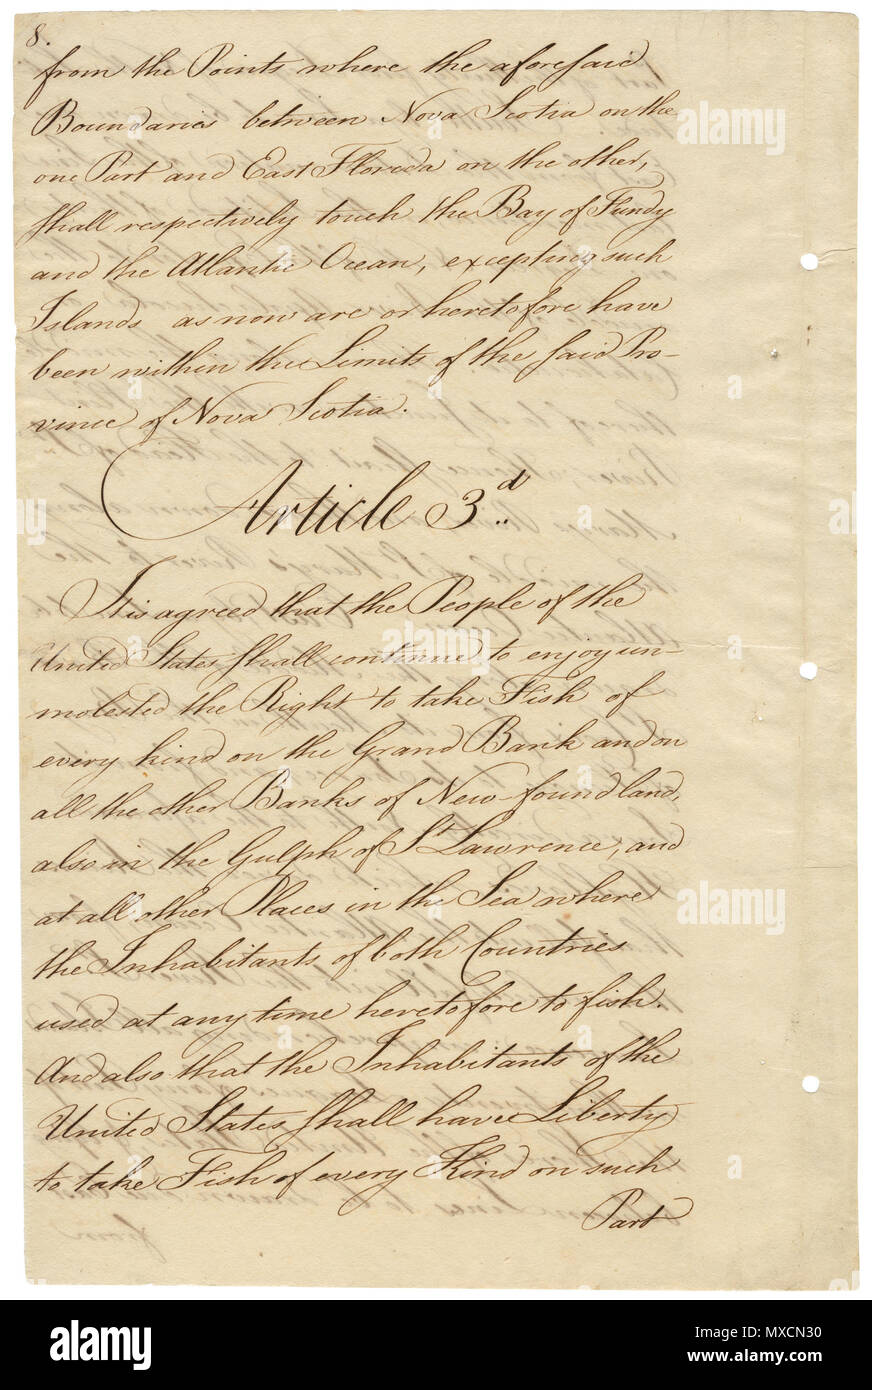 8.
from the Points where the aforesaid
Boundaries between Nova Scotia on the
one Part and East Florida on the other,
shall respectively touch the Bay of Fundy
and the Atlantic Ocean, excepting such
Islands as now are or heretofore have
been within the Limits of the said Pro-
vince of Nova Scotia.
Article 3.d
It is agreed that the People of the
United States shall continue to enjoy un-
molested the Right to take Fish of
every kind on the Grand Bank and on
all the other Banks of New-foundland,
also in the Gulph of St Lawrence, and
at all other Places in the Sea where
the Inhabitants of both Countries
used at any time heretofore to fish.
And also that the Inhabitants of the
United States shall have Liberty
to take Fish of every Kind on such
Part
alamy
Image ID: MXCN30
www.alamy.com